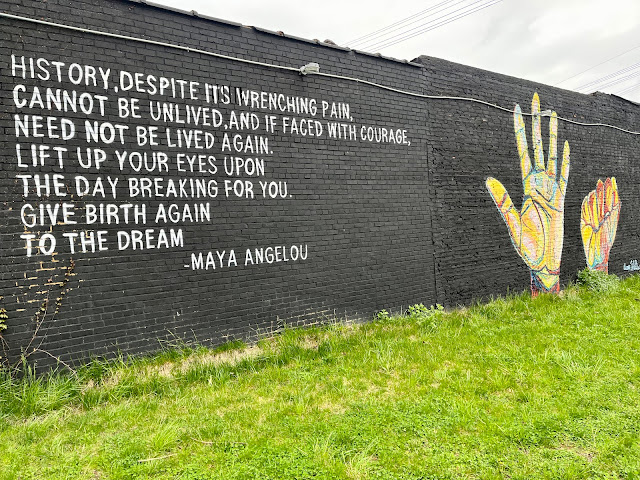 HISTORY, DESPITE IT'S WRENCHING PAIN,
CANNOT BE UNLIVED, AND IF FACED WITH COURAGE,
NEED NOT BE LIVED AGAIN.
LIFT UP YOUR EYES UPON
THE DAY BREAKING FOR YOU.
GIVE BIRTH AGAIN
TO THE DREAM
-MAYA ANGELOU